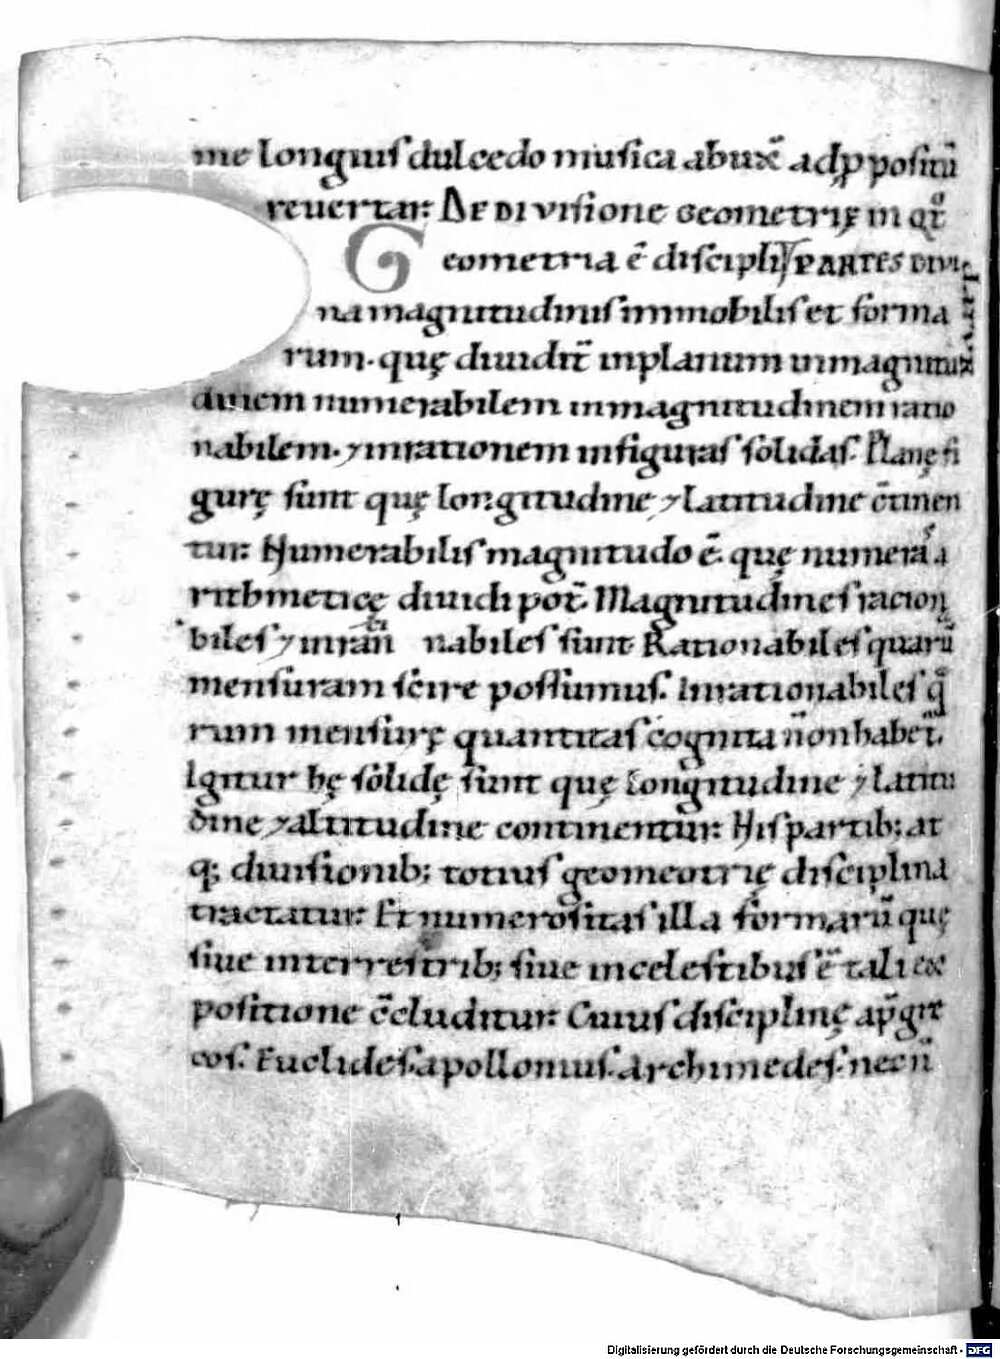 me longius dulcedo musica abuxē adp̱positū
reuertar: De divisione geometriȩ in qͦt
Geometria ē discipli partes divi
diturꝫ
na magnitudinis immobilis et forma
rum. quę diuidit̄ inplanum inmagnitu
dinem numerabilem inmagnitudinem ratio
nabilem. ⁊inrationem infiguras solidas. Planę fi
gurę sunt quę longitudine ⁊latitudine ōtinen
tur: Numerabilis magnitudo ē. quę numeris a
rithmeticę diuidi pot̄. Magnitudines racion
biles ⁊inrān nabiles sunt Rationabiles quarū
mensuram scire possumus. Inrationabiles qͣ
rum mensurę quantitas cognita ñ non habet̄.
Igitur hę solidę sunt quę longitudine ⁊latitu
dine ⁊altitudine continentur: His partib; at
q; diuisionib; totius geomeotrię disciplina
tractatur: Et numerositas illa formarū quę
siue interrestrib; siue incelestibus ē tali ex
positione c̄cluditur: Cuius disciplinę ap̄ gre
cos. Euclides. apollonius. archimedes. necn̄
Digitalisierung gefördert durch die Deutsche Forschungsgemeinschaft - DFG